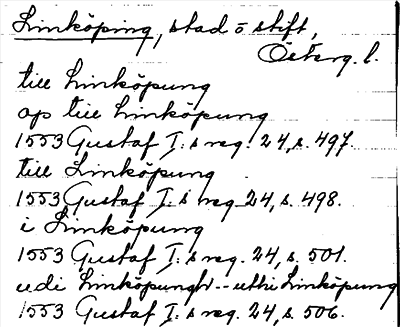 Linköping, stad o stift,
Österg. l.
till Linköpung
op till Linköpung
1553 Gustaf I:s reg. 24, s. 497.
till Linköpung
1553 Gustaf I:s reg. 24, s. 498.
i Linköpung
1553 Gustaf I:s reg. 24, s. 501.
udi Linköpung -- uthi Linköpung
1553 Gustaf I:s reg. 24, s. 506.